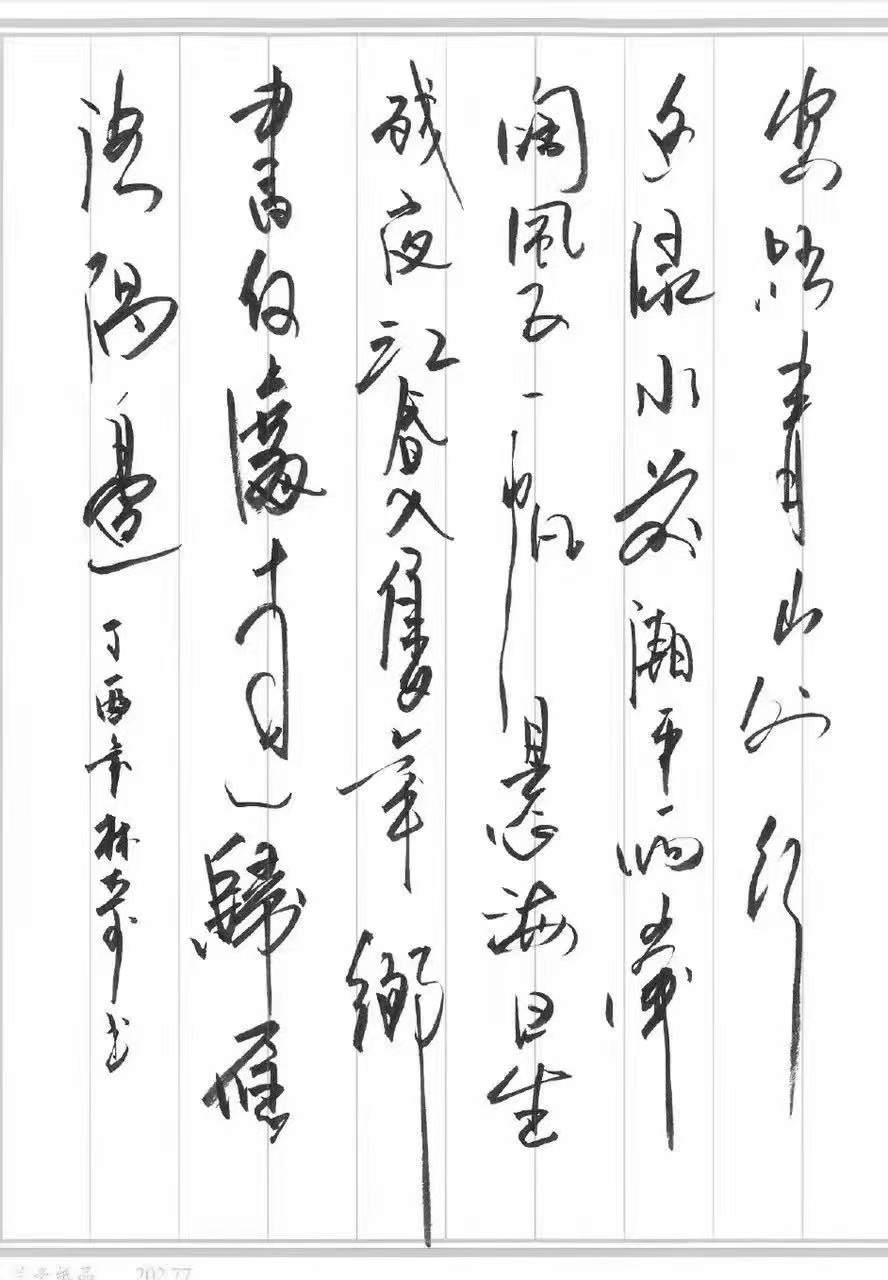 客路青山外行
舟綠水前潮平兩岸
闊風正一帆懸海日生
残夜江春入舊年鄉
書何處達歸雁
洛陽邊 丁酉年林書